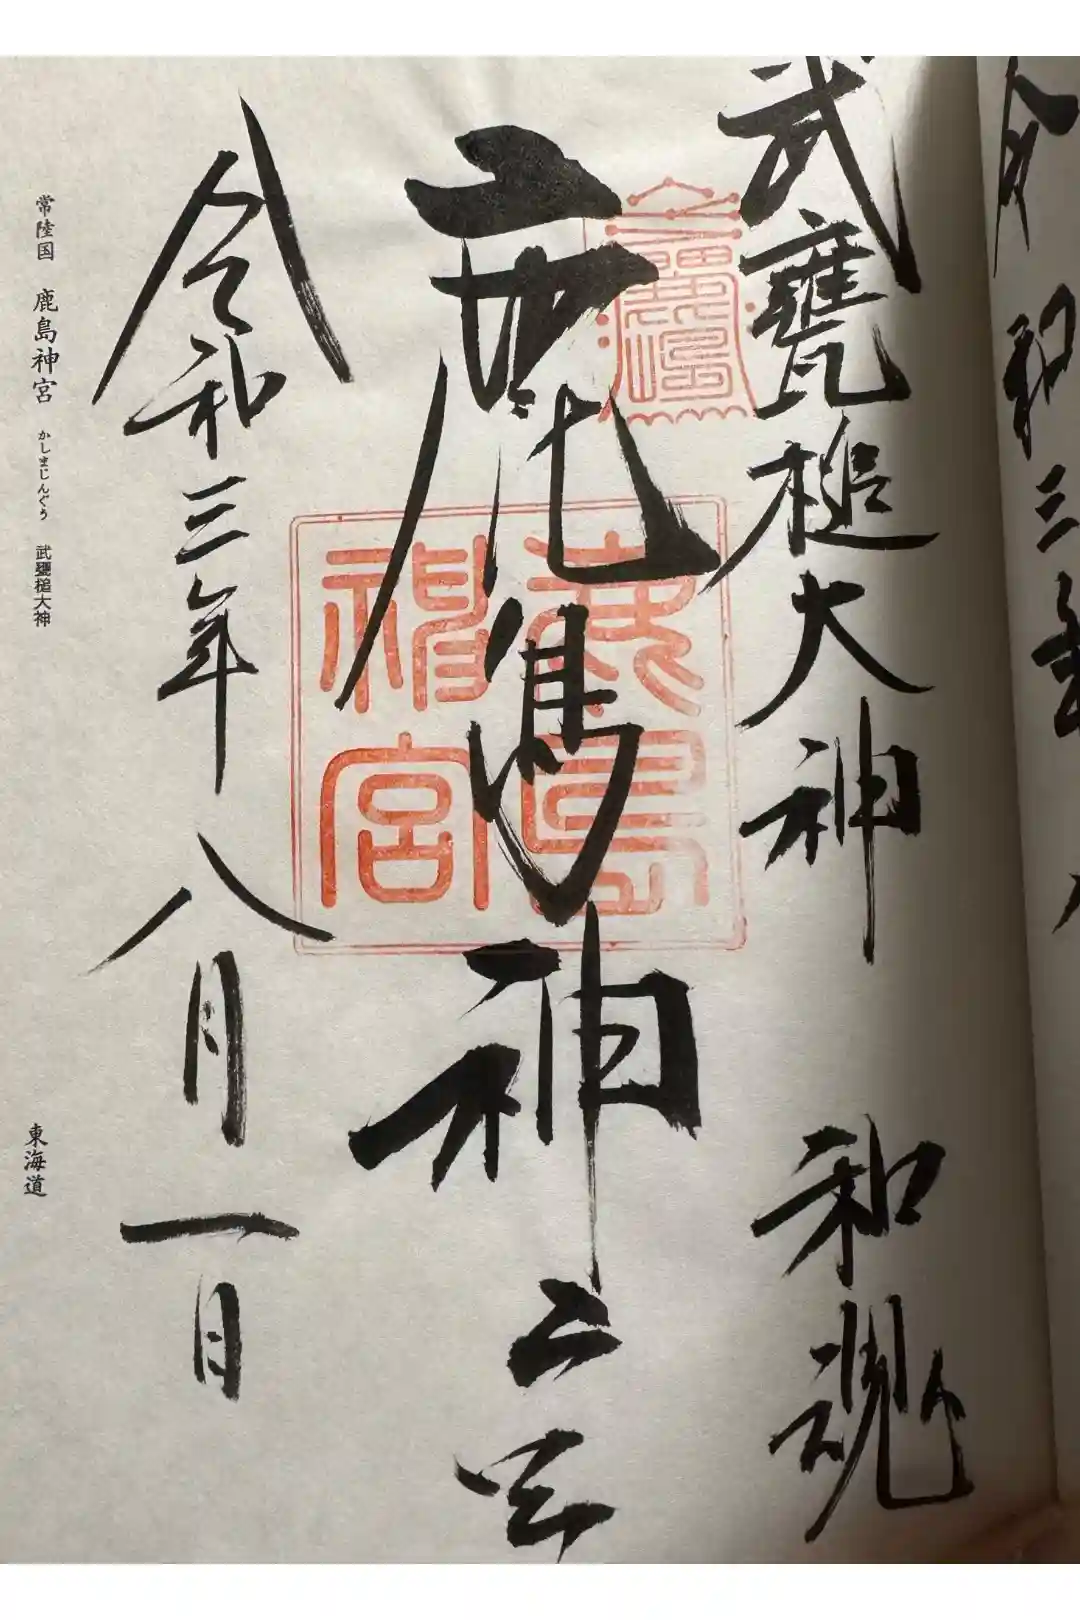 令和三年八
武甕槌大神 和魂
鹿島神宮
鹿島神宮
令和三年八月一日
常陸国 鹿島神宮 かしまじんぐう 武甕槌大神 東海道